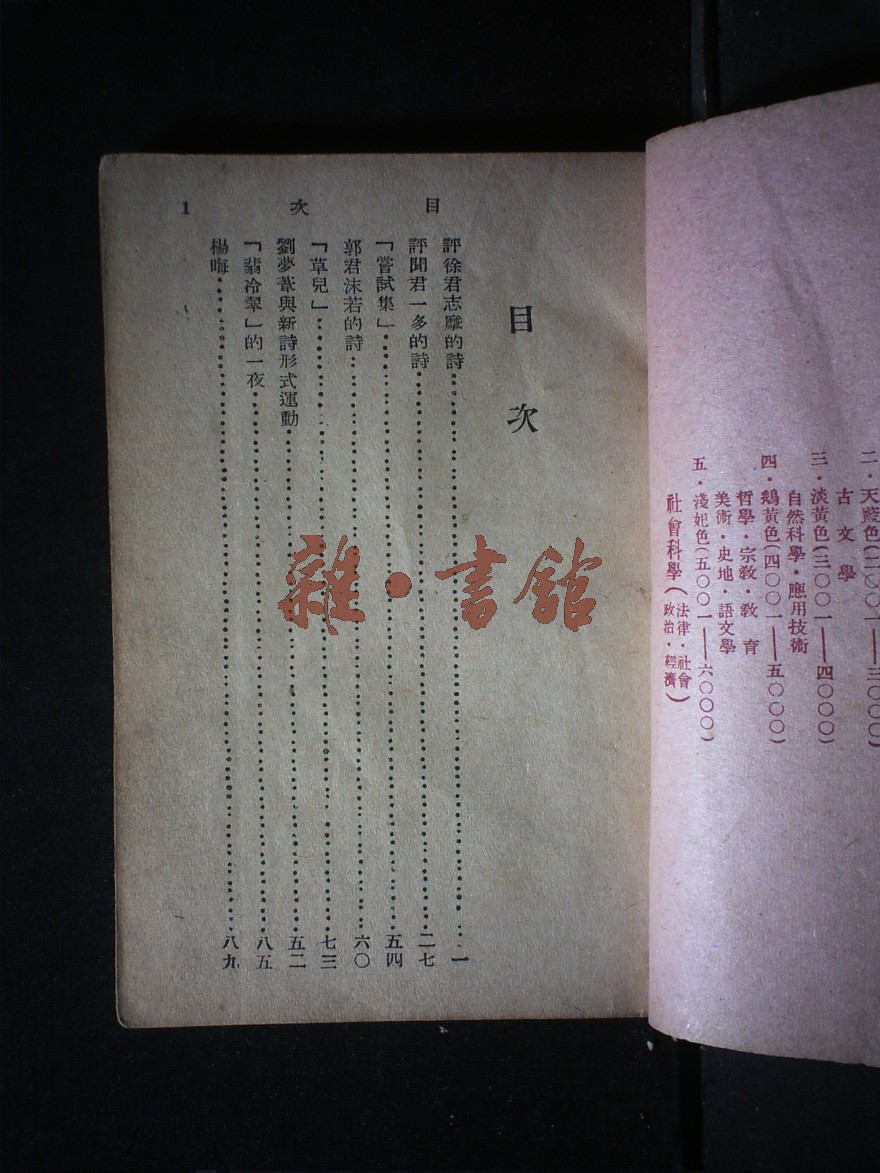 二・天藍色(二〇〇一——三〇〇〇)
古文學
三・淡黃色(三〇〇一——四〇〇〇)
自然科學・應用技術
四・鵝黃色(四〇〇一——五〇〇〇)
哲學・宗教・教育
美術・史地・語文學
五・淺妃色(五〇〇一——六〇〇〇)
社會科學(法律・社會
政治・經濟)
目次 1
目次
評徐君志摩的詩……一
評聞君一多的詩……二七
「嘗試集」……五四
郭君沫若的詩……六〇
「草兒」……七三
劉夢葦與新詩形式運動……五二
「翡冷翠」的一夜……八五
楊晦……八九
雜・書館